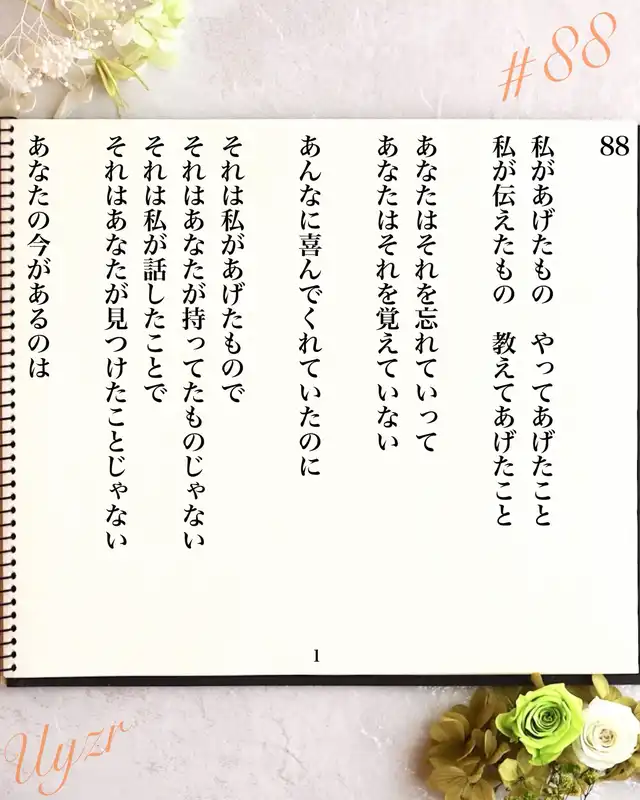 #88
88
私があげたもの　やってあげたこと
私が伝えたもの　教えてあげたこと
あなたはそれを忘れていって
あなたはそれを覚えていない
あんなに喜んでくれていたのに
それは私があげたもので
それはあなたが持ってたものじゃない
それは私が話したことで
それはあなたが見つけたことじゃない
あなたの今があるのは
1
Uyzr